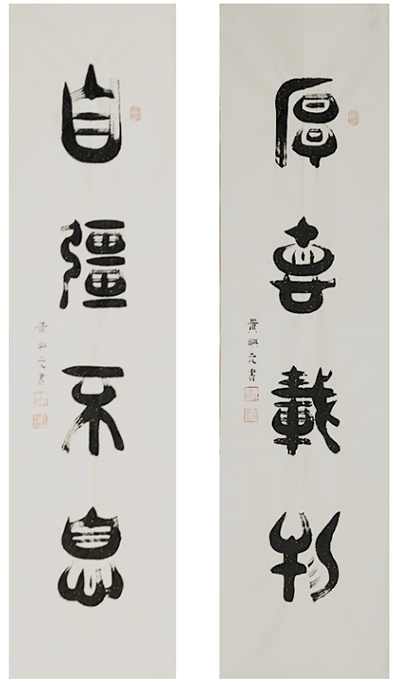 厚悳載物
黄元書
自彊不息
黄元書